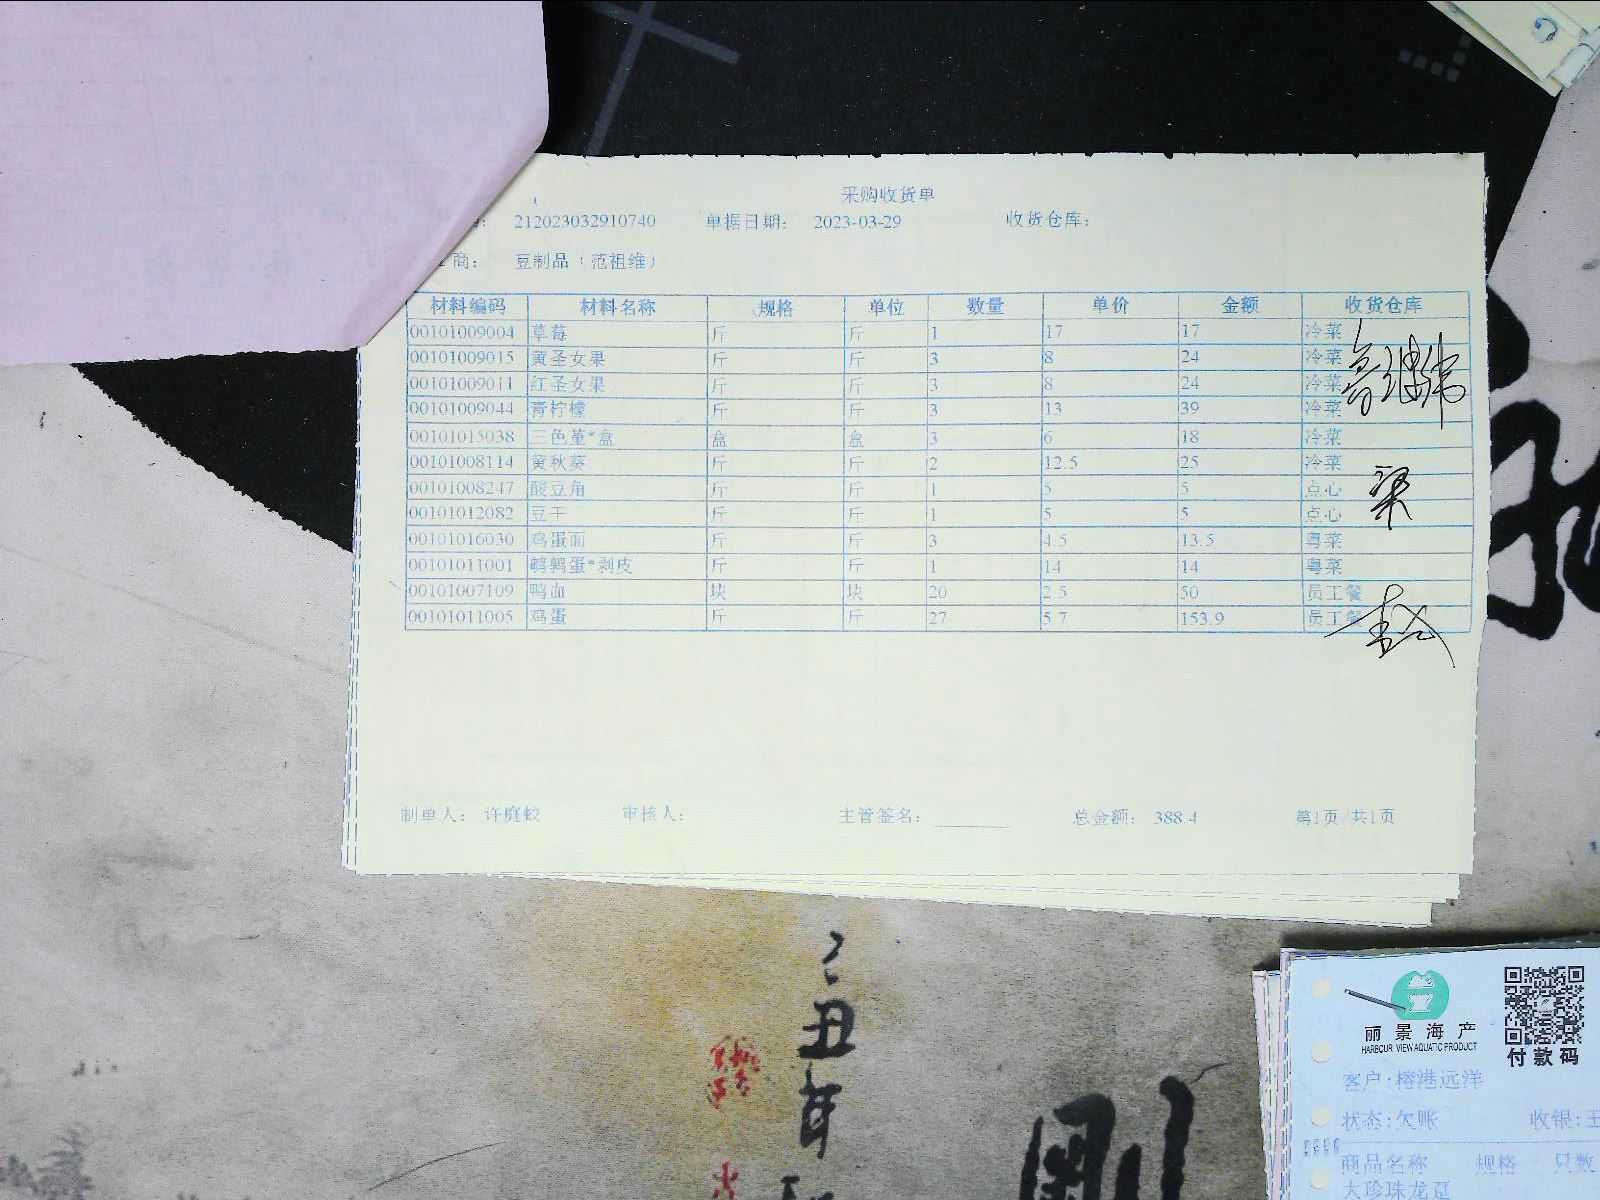 采购收货单
212023032910740 单据日期: 2023-03-29 收货仓库:
商: 豆制品（范祖维）
材料编码 材料名称 规格 单位 数量 单价 金额 收货仓库
00101009004 草莓 斤 斤 1 17 17 冷菜
00101009015 黄圣女果 斤 斤 3 8 24 冷菜
00101009011 红圣女果 斤 斤 3 8 24 冷菜
00101009044 青柠檬 斤 斤 3 13 39 冷菜
00101015038 三色堇*盒 盒 盒 3 6 18 冷菜
00101008114 黄秋葵 斤 斤 2 12.5 25 冷菜
00101008247 酸豆角 斤 斤 1 5 5 点心
梁
00101012082 豆干 斤 斤 1 5 5 点心
00101016030 鸡蛋面 斤 斤 3 4.5 13.5 粤菜
00101011001 鹌鹑蛋*剥皮 斤 斤 1 14 14 粤菜
00101007109 鸭血 块 块 20 2.5 50 员工餐
00101011005 鸡蛋 斤 斤 27 5.7 153.9 员工餐
制单人: 许庭蛟 审核人: 主管签名: 总金额: 388.4 第1页/共1页
丽景海产
HARBOUR VIEW AQUATIC PRODUCT
付款码
客户:榕港远洋
状态:欠账 收银:王
商品名称 规格 只数
大珍珠龙趸
丑年